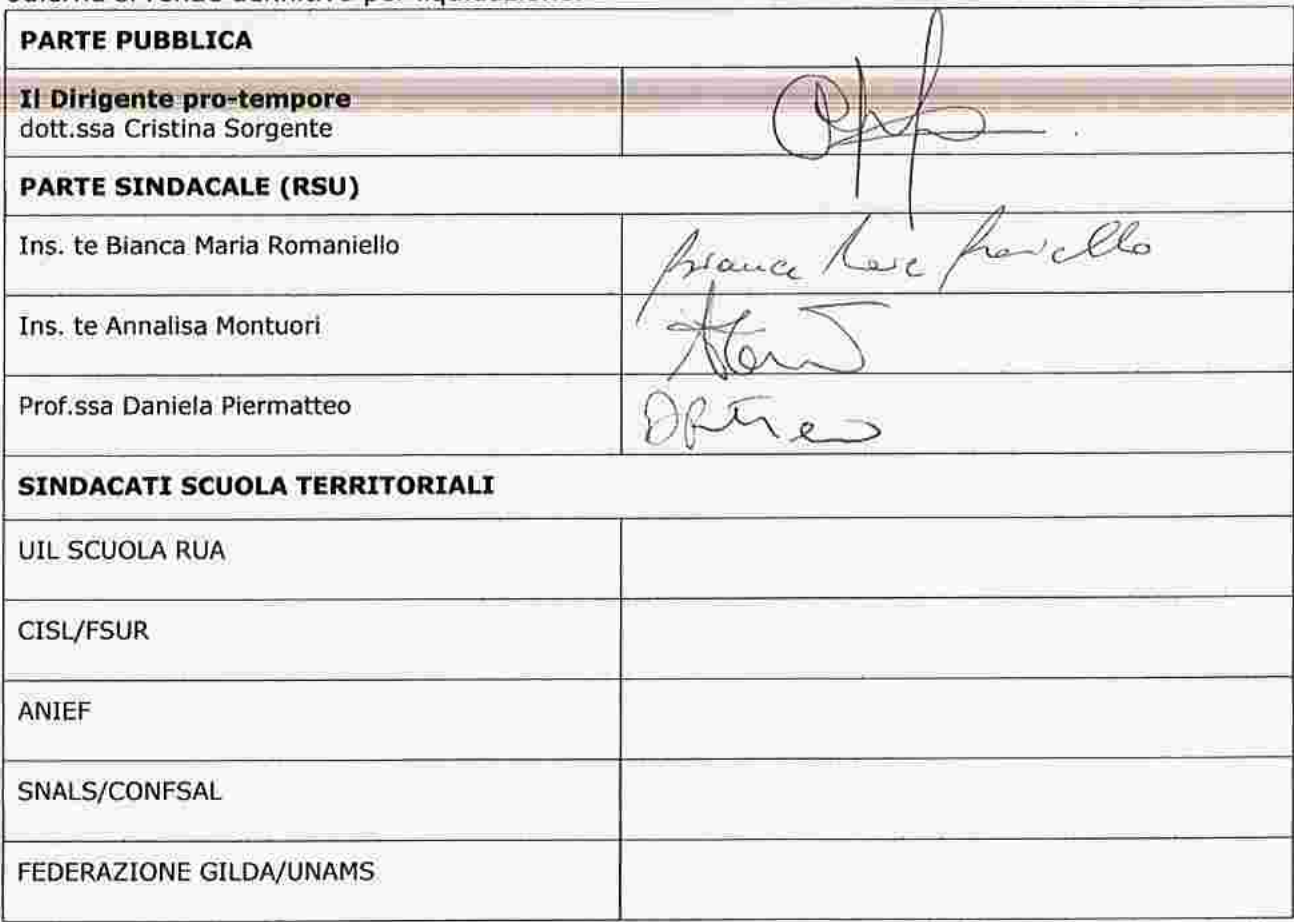 PARTE PUBBLICA
Il Dirigente pro-tempore
dott.ssa Cristina Sorgente
PARTE SINDACALE (RSU)
Ins. te Bianca Maria Romaniello
Ins. te Annalisa Montuori
Prof.ssa Daniela Piermatteo
SINDACATI SCUOLA TERRITORIALI
UIL SCUOLA RUA
CISL/FSUR
ANIEF
SNALS/CONFSAL
FEDERAZIONE GILDA/UNAMS